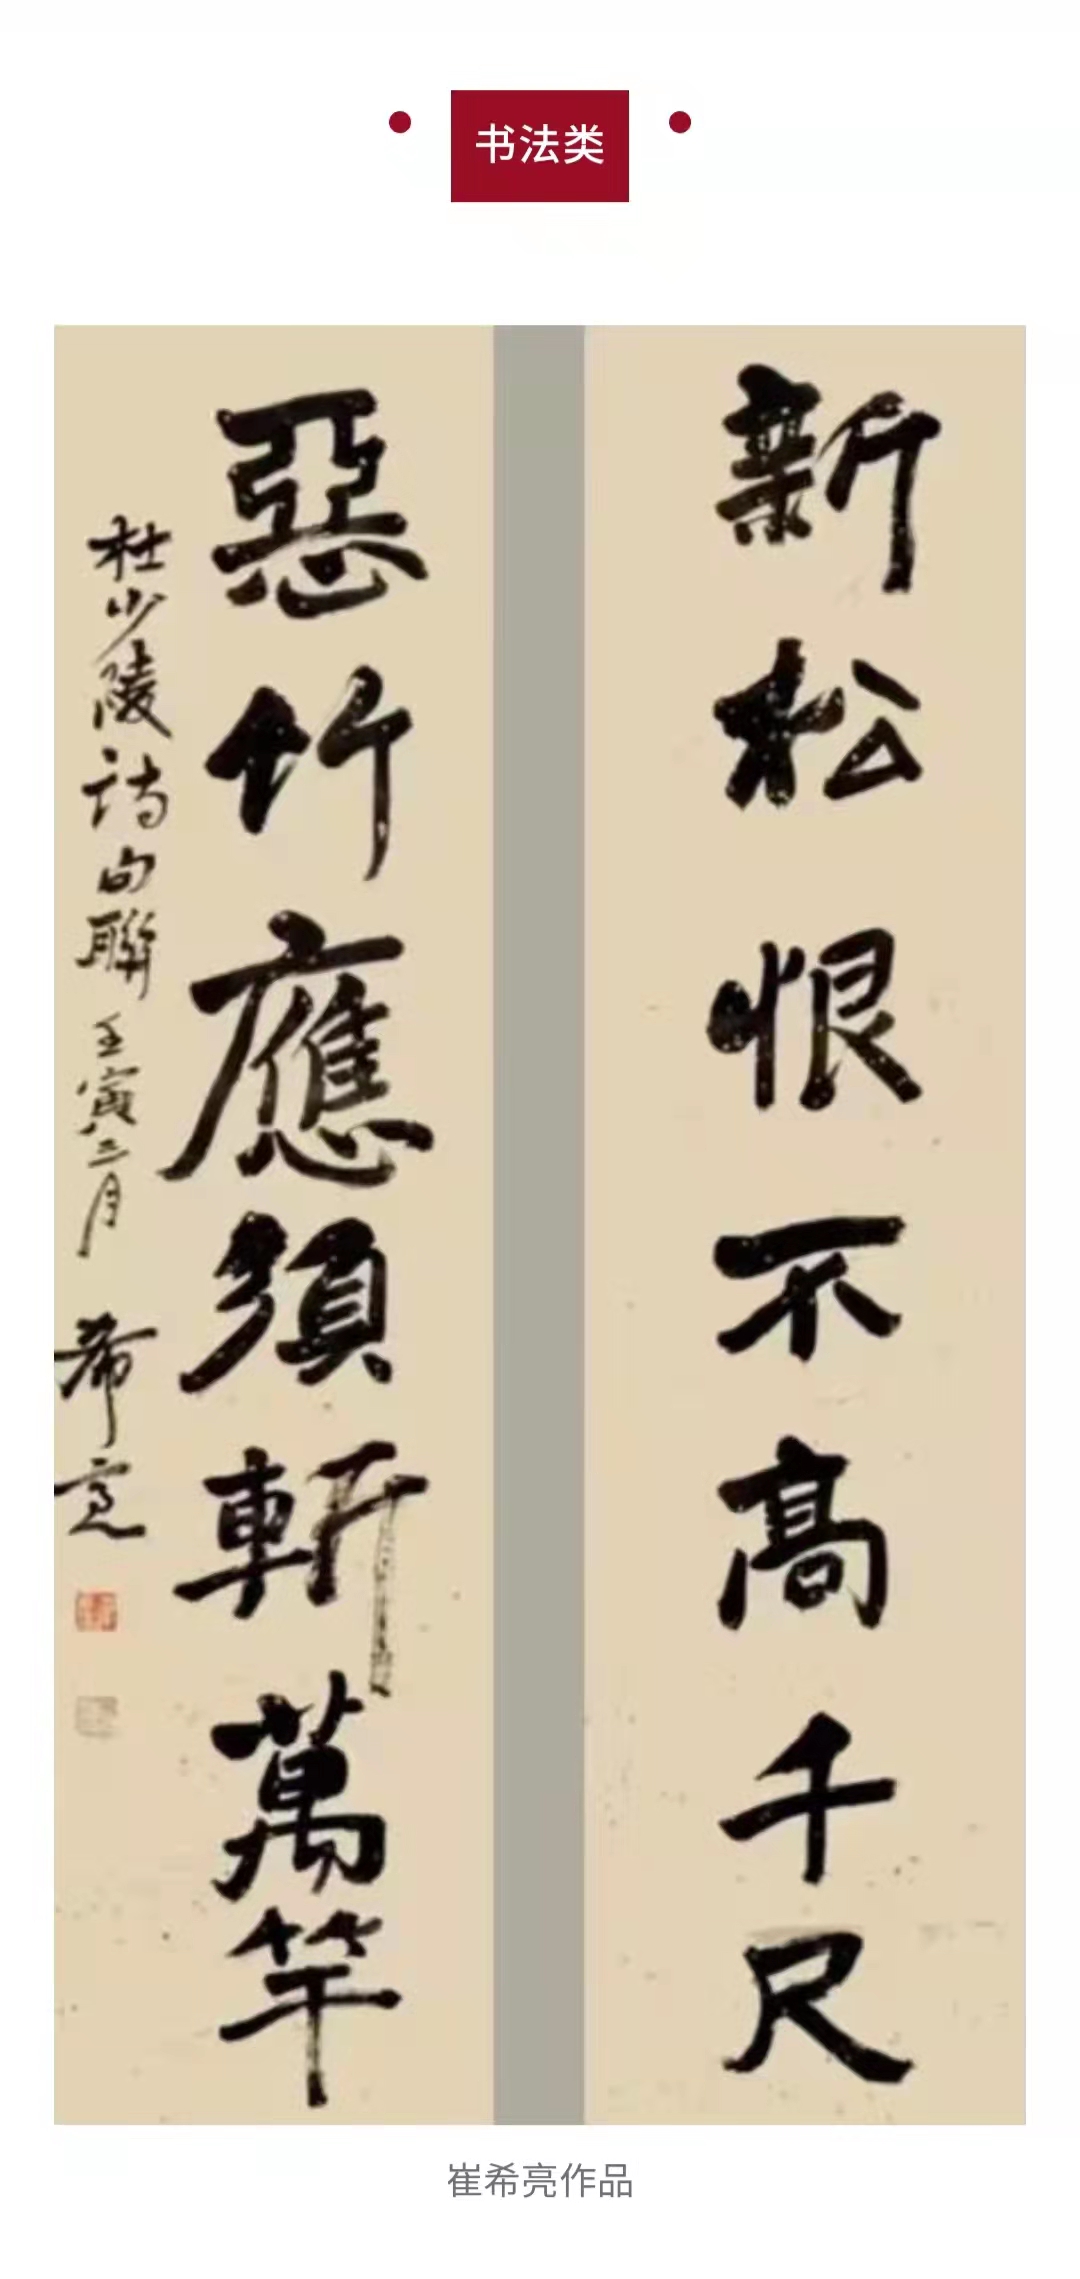 书法类
新松恨不高千尺
惡竹應須軒萬竿
杜少陵诗句聯 壬寅三月 希亮
崔希亮作品